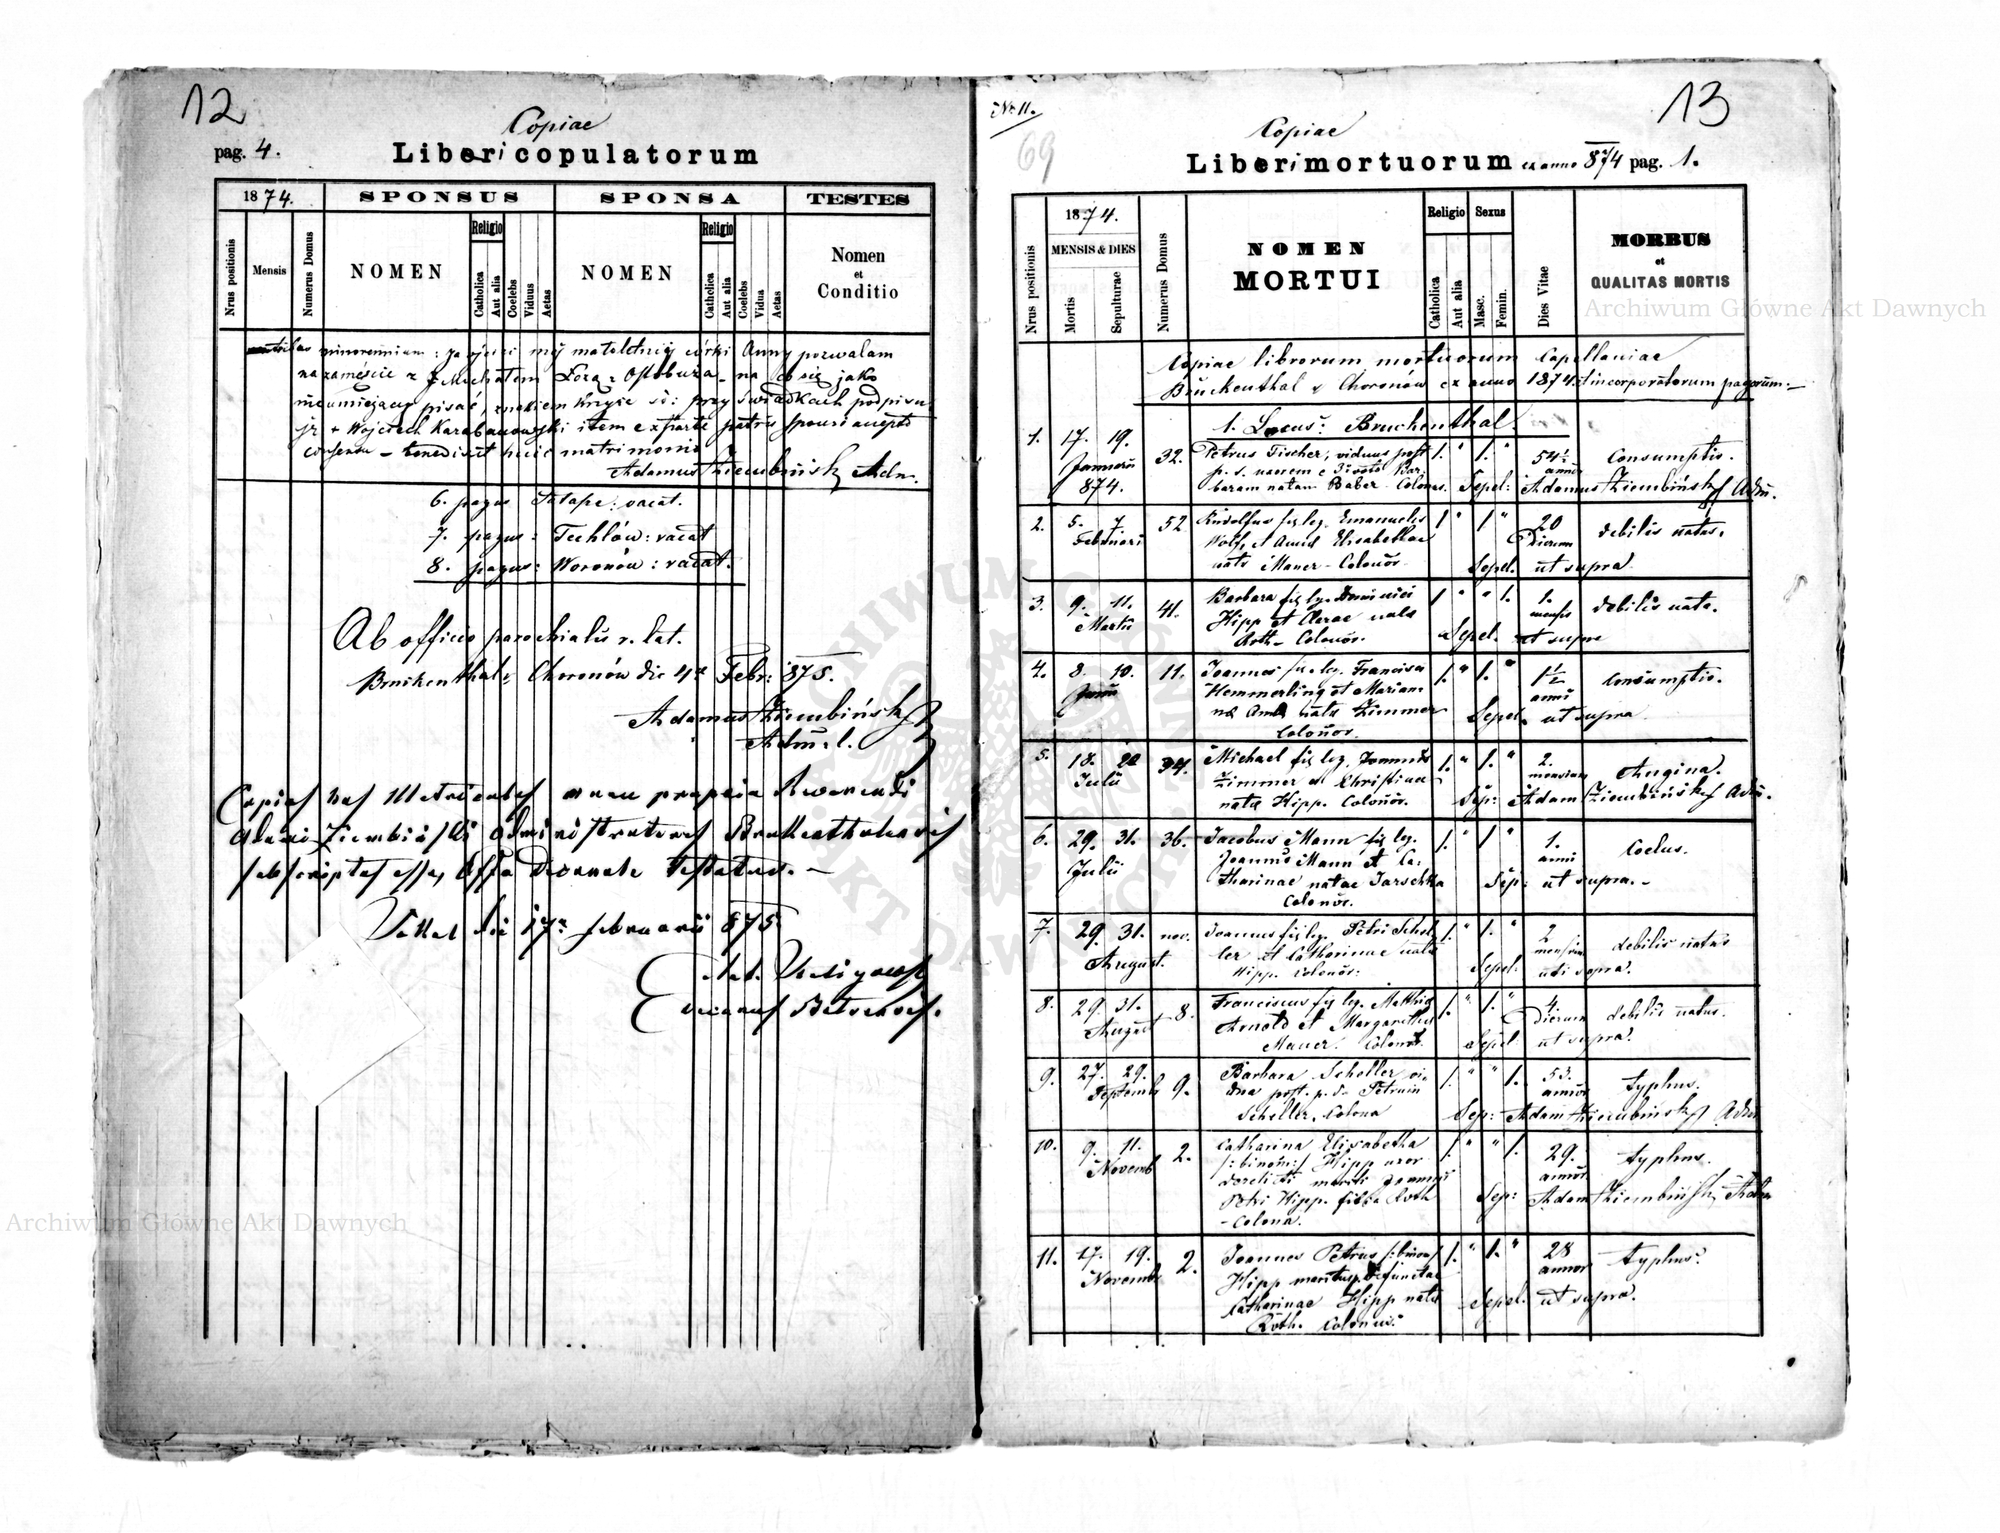 12
Copiae
pag. 4. Liberi copulatorum
1874. SPONSUS SPONSA TESTES
Nrus positionis Mensis Numerus Domus NOMEN Religio Catholica Aut alia Coelebs Viduus Aetas NOMEN Religio Catholica Aut alia Coelebs Vidua Aetas Nomen et Conditio
minorennium: ja ojciec mej małoletniej córki Anny pozwalam
na zamęście z Michałem Łozą z Ostobuża na co się jako
nieumiejący pisać, znakiem krzyża ś: przy świadkach podpisu
ję + Wojciech Karabanowski item ex parte patris sponsi accepto
consensu – benedixit huic matrimonio
Adamus Ziembiński Adm.
6. pagus Salape: vacat.
7. pagus: Techlów: vacat
8. pagus: Woronów: vacat.
Ab officio parochialis r. lat.
Bruckenthal Choronów die 4ta Febr: 875.
Adamus Ziembiński
Adm. l.
Copias has Metricales manu propria Reverendi
Adami Ziembiński Administratoris Bruckenthalensis
subscriptas esse, Offo Decanale testatur. –
die 17a februarii 875.
Decanus Belzensis.
№ 11.
69
13
Copiae
Liberi mortuorum ex anno 874 pag. 1.
Nrus positionis 1874. MENSIS & DIES Mortis Sepulturae Numerus Domus NOMEN MORTUI Religio Catholica Aut alia Sexus Masc. Femin. Dies Vitae MORBUS et QUALITAS MORTIS
Copiae librorum mortuorum Capellaniae
Bruckenthal v Choronów ex anno 1874 et incorporatorum pagorum. –
1. Locus: Bruchenthal.
1. 17. 19. Januarii 874. 32. Petrus Fischer, viduus post
p. d. uxorem e Bar-
baram natam Baber Colonus. 1. " 1. " 54½ annor Consumptio.
Sepel: Adamus Ziembiński Adm.
2. 5. 7. Februari 52. Rudolfus fig leg. Emanuelis
Wolf, et Elisabethae
nata Maner – Colonor. 1 " 1 " 20 Dierum debilis natus.
Sepel. ut supra
3. 9. 11. Martii 41. Barbara fig leg. Dominici
Hipp et Clarae nata
Roth – Colonor. 1 " " 1. 1. mensis debilis nata.
Sepel. ut supra
4. 8. 10. Junii 11. Joannes fig leg. Francisci
Hemmerling et Marian-
na Anna nata Zimmer
Colonor. 1. " 1. " 1½ anni Consumptio.
Sepel. ut supra
5. 18. 20 Julii 34. Michael fig leg. Joannis
Zimmer et Christinae
nata Hipp. Colonor. 1. " 1. " 2. mensium Angina.
Sep: Adam Ziembiński Adm.
6. 29. 31. Julii 36. Jacobus Mann fig leg.
Joannis Mann et Ca-
tharinae natae Jarschka
Colonor. 1. " 1 " 1. anni
Sep: ut supra. –
7. 29. 31. August. nov. Joannes fig leg. Petri Schel-
ler et Catharinae nata
Hipp. Colonor. 1. " 1. " 2 mensium debilis natus
Sepel: uti supra.
8. 29. 31. August 8. Franciscus fig leg. Matthia
Arnold et Margarethae
Mauer. Colonor. 1. " 1. " 4. Dierum debilis natus.
Sepel. ut supra.
9. 27. 29. Septemb 9. Barbara Scheller vi-
dua post. p. d. Petrum
Scheller. Colona 1. " " 1. 53. annor typhus.
Sep: Adam Ziembiński Adm
10. 9. 11. Novemb 2. Catharina Elisabetha
/:binom:/ Hipp uxor
derelicti mariti Joannis
Petri Hipp. filia Roth
– Colona. 1. " " 1. 29. annor typhus.
Sep: Adam Ziembiński Adm
11. 17. 19. Novemb 2. Joannes Petrus /:binom/
Hipp maritus defunctae
Catharinae Hipp nata
Roth. Colonus. 1. " 1. " 28 annor typhus.
Sepel. ut supra.
Archiwum Główne Akt Dawnych
Archiwum Główne Akt Dawnych
ARCHIWUM GŁÓWNE AKT DAWNYCH